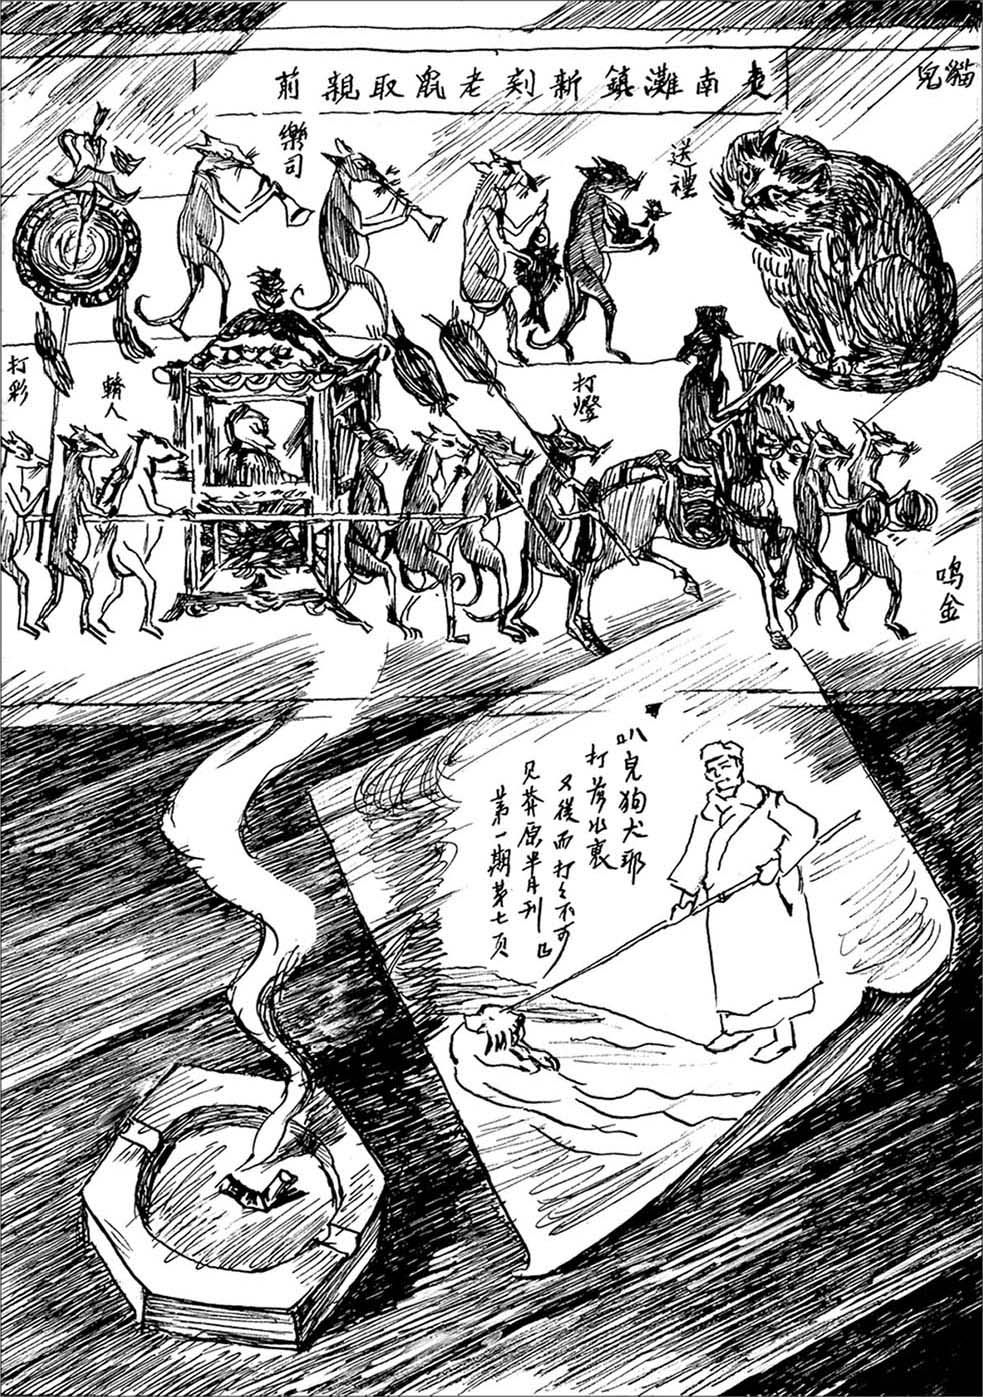 貓兒
楚南灘鎮新刻老鼠取親前
樂司
送禮
打彩
轎人
打燈
鳴金
叭兒狗犬耶
打落水裏
又從而打之不可
见莽原半月刊
第一期第七页